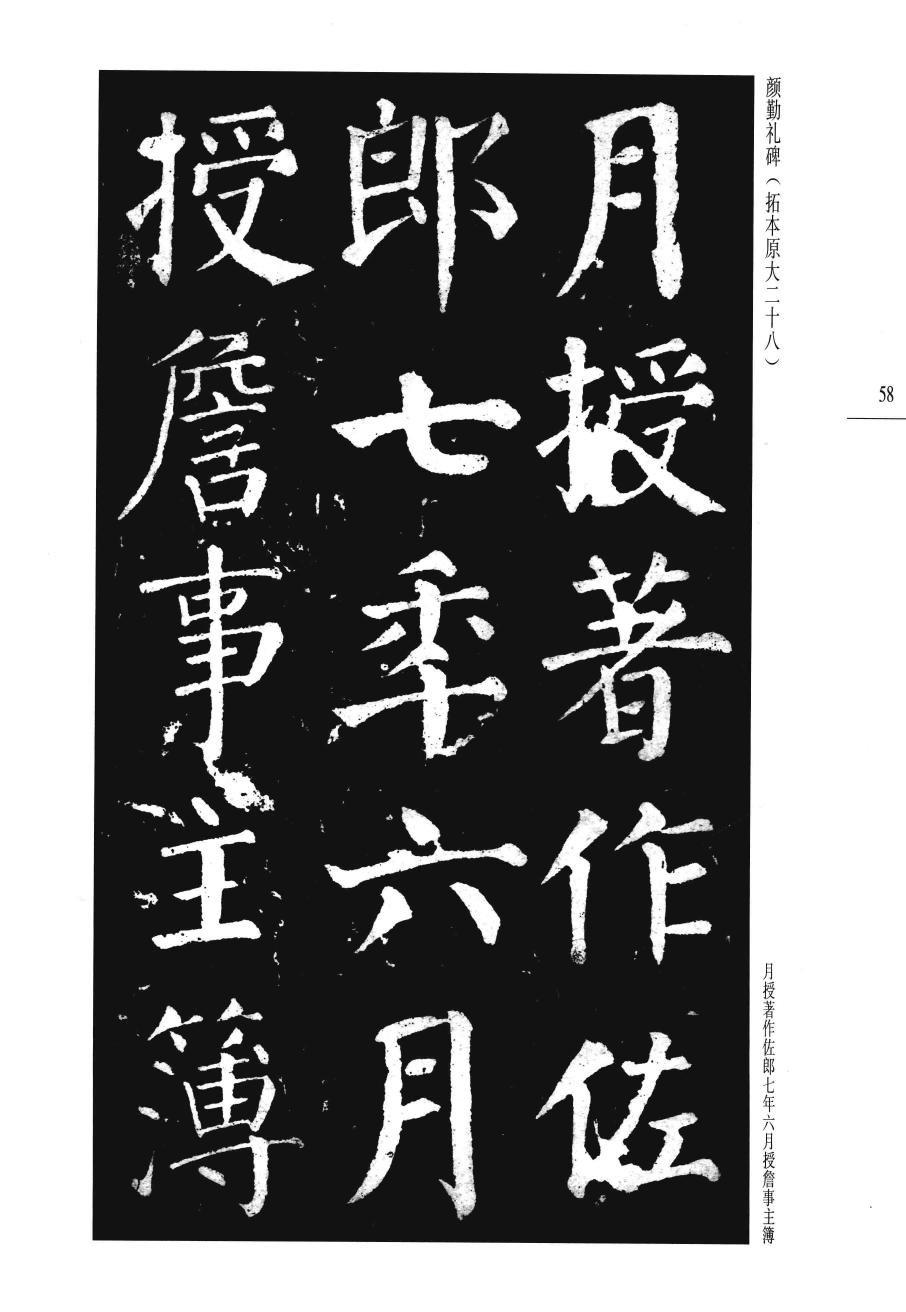 颜勤礼碑（拓本原大二十八）
58
月授著作佐
郎七年六月
授詹事主簿
月授著作佐郎七年六月授詹事主簿